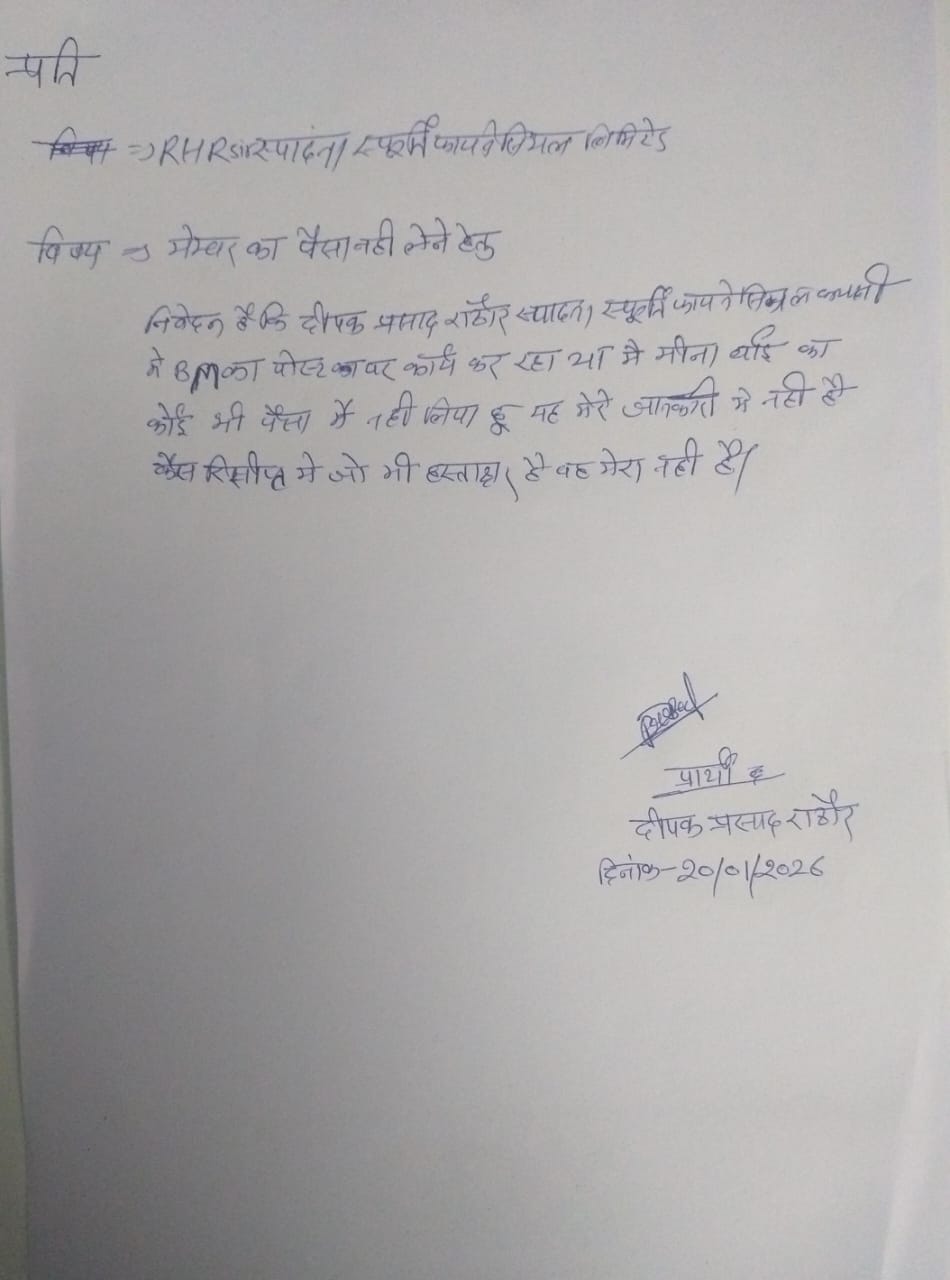 प्रति
विषय => RHR sir स्पादंना स्फूर्ति फायनेंसियल लिमिटेड
विषय => मेम्बर का पैसा नही लेने हेतु
निवेदन है कि दीपक प्रसाद राठौर स्पादना स्फूर्ति फायनेंसियल कम्पनी
मे BM का पोस्ट पर कार्य कर रहा था मै मीना बाई का
कोई भी पैसा मैं नही लिया हू यह मेरे जानकारी मे नही है
कैस रिसीप्त मे जो भी हस्ताक्षर है वह मेरा नही है।
प्रार्थी
दीपक प्रसाद राठौर
दिनांक-20/01/2026